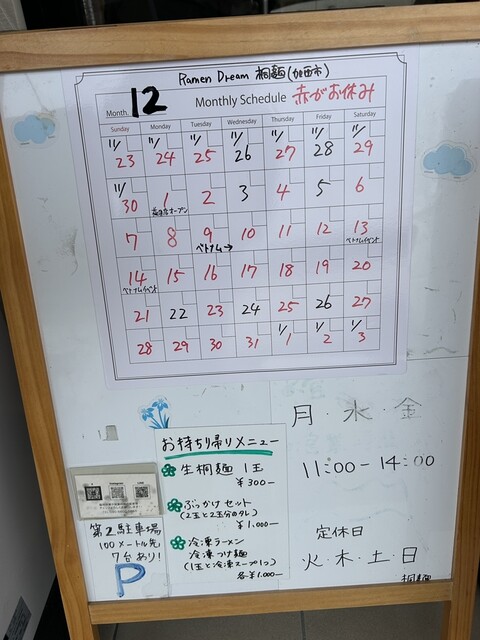 Ramen Dream 桐麺(加西市)
Month 12 Monthly Schedule 赤がお休み
Sunday Monday Tuesday Wednesday Thursday Friday Saturday
11/23 11/24 11/25 11/26 11/27 11/28 11/29
11/30 1 2 3 4 5 6
オープン
7 8 9 10 11 12 13
ベトナム→ ベトナムイベント
14 15 16 17 18 19 20
ベトナムイベント
21 22 23 24 25 26 27
28 29 30 31 1/1 1/2 1/3
お持ち帰りメニュー
生桐麺 1玉
¥300-
ぶっかけセット
(2玉と2玉分のタレ)
¥1,000-
冷凍ラーメン
冷凍つけ麺
(1玉と冷凍スープ1つ)
各¥1,000-
第2駐車場
100メートル先
7台あり!
P
月・水・金
11:00-14:00
定休日
火・木・土・日
桐麺